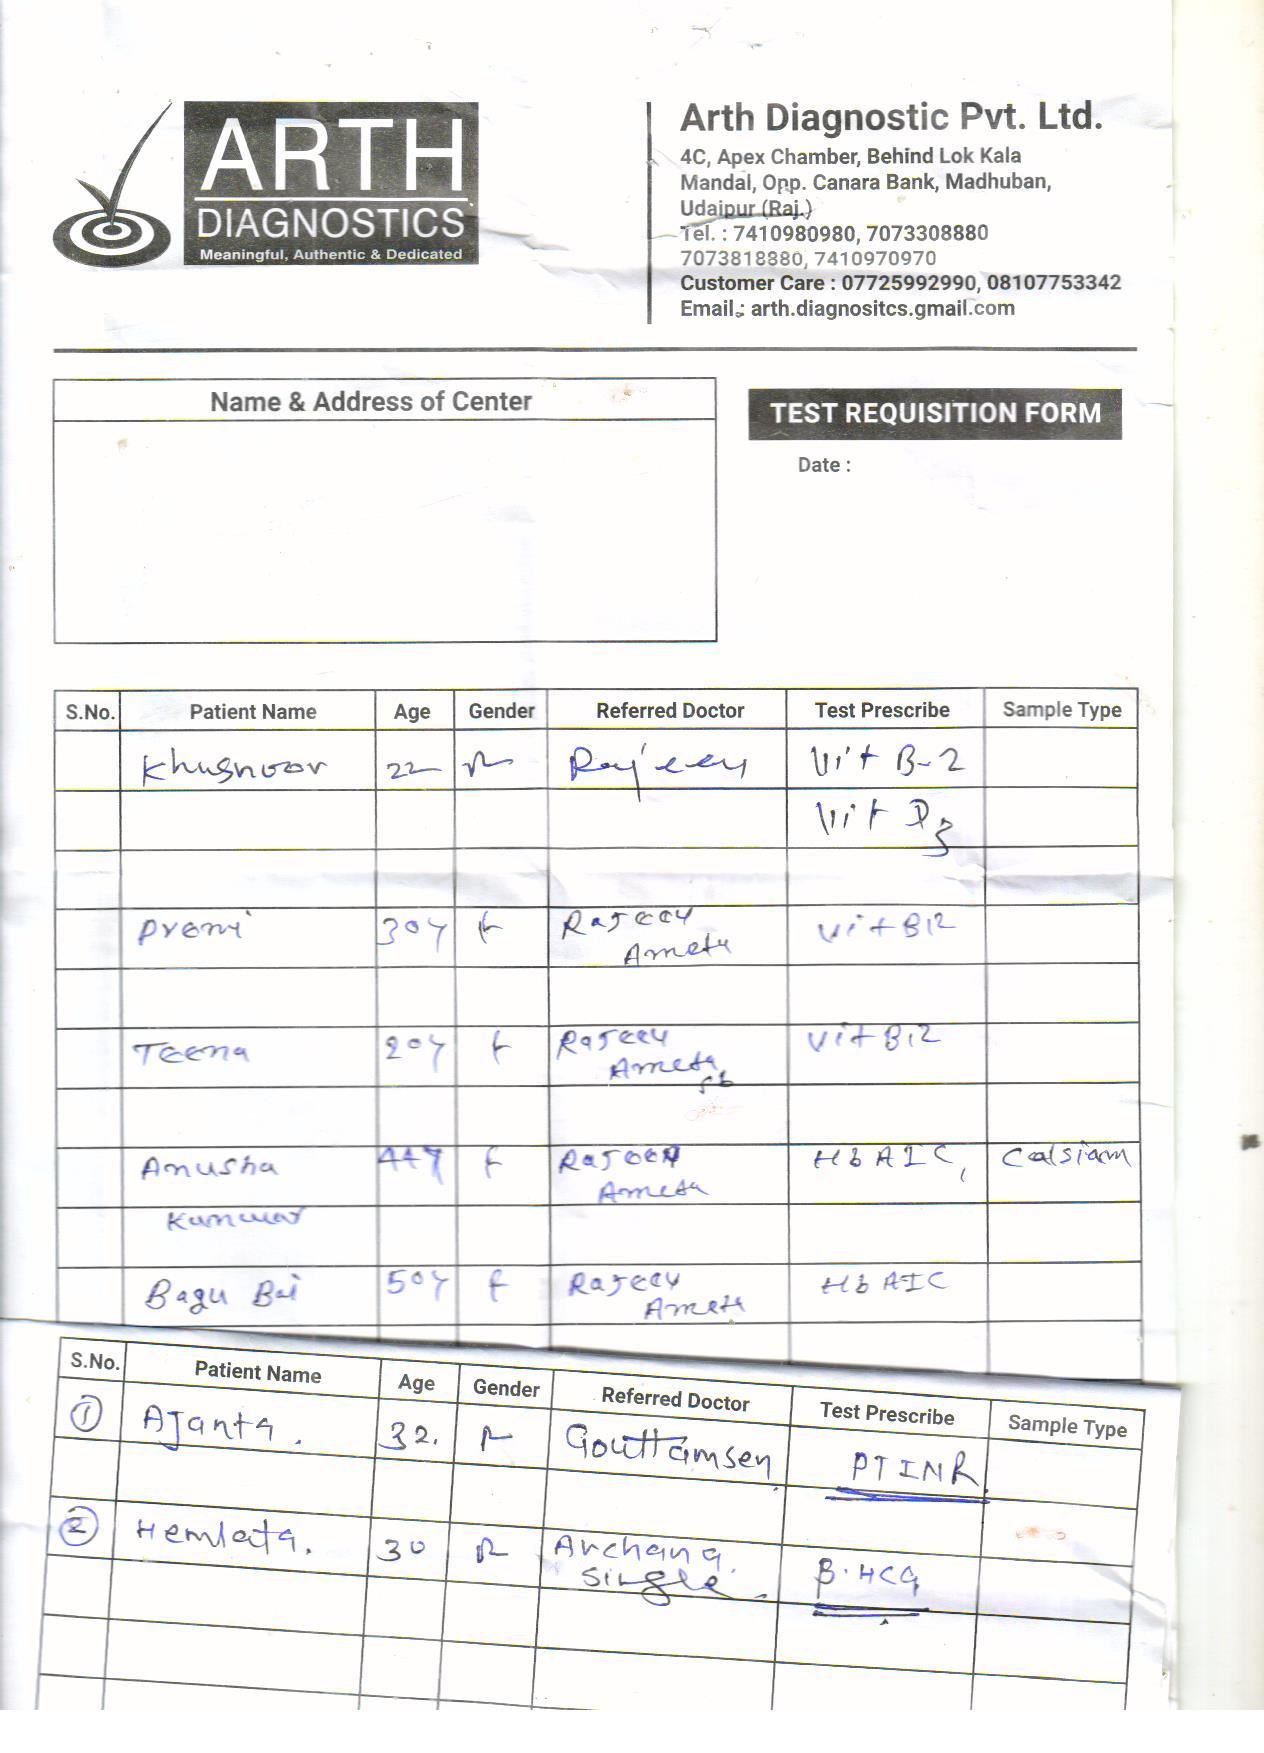 ARTH
DIAGNOSTICS
Meaningful, Authentic & Dedicated
Arth Diagnostic Pvt. Ltd.
4C, Apex Chamber, Behind Lok Kala
Mandal, Opp. Canara Bank, Madhuban,
Udaipur (Raj.)
Tel. : 7410980980, 7073308880
7073818880, 7410970970
Customer Care : 07725992990, 08107753342
Email : arth.diagnositcs.gmail.com
Name & Address of Center
TEST REQUISITION FORM
Date :
S.No. Patient Name Age Gender Referred Doctor Test Prescribe Sample Type
Khushnoor 22 Rajeev Vit B-2
Vit D3
Premi 30y f Rajeev Vit B12
Ameta
Teena 20y f Rajeev Vit B12
Ameta
Anusha 44y f Rajeev HbA1C, Calsiam
Ameta
Kunwar
Bagu Bai 50y f Rajeev HbA1C
Ameta
S.No. Patient Name Age Gender Referred Doctor Test Prescribe Sample Type
1 Ajanta. 32. Gouttamsen PTINR
2 Hemlata. 30 Archana. B.HCG
Single.